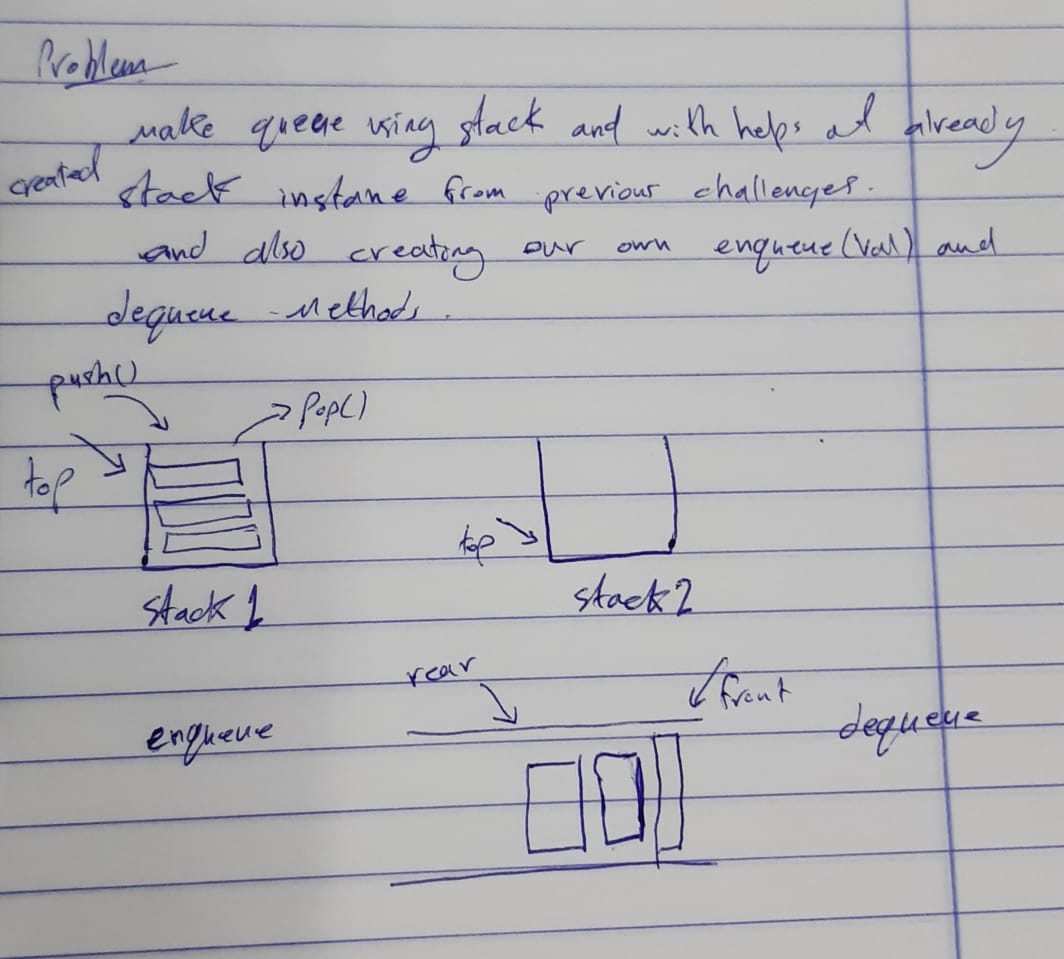 Problem
make queue using stack and with helps of already
created stack instane from previous challenges.
and also creating our own enqueue(val) and
dequeue methods.
push()
pop()
top
top
stack 1
stack 2
rear
front
enqueue
dequeue